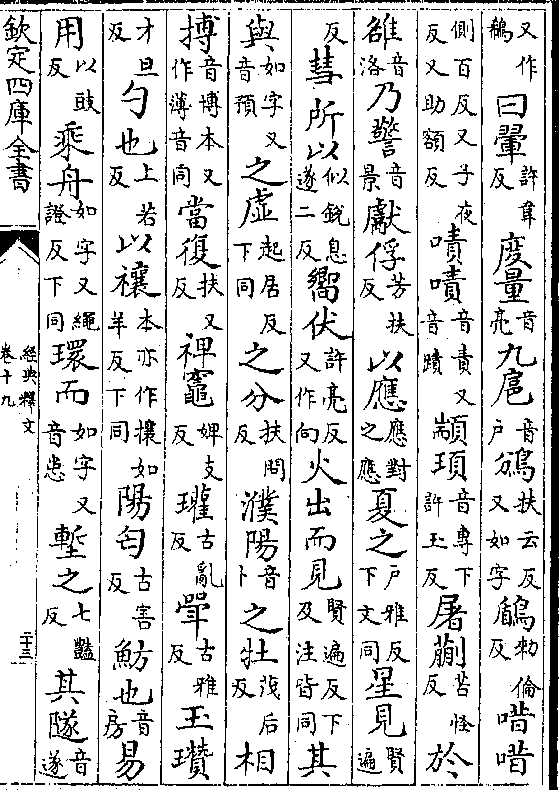 又作曰翬許韋反度量音亮九扈音户鳻扶云反又如字鶞勑倫反唶唶
側百反又子夜反又助額反嘖嘖音責又音蹟顓頊音專下許玉反屠蒯苦怪反於
雒音洛乃警音景獻俘芳扶反以應應對之應夏之户雅反下文同星見賢遍
反彗所以似銳息遂二反嚮伏許亮反又作向火出而見賢遍反下及注皆同其
與如字又音預之虛起居反下同之分扶問反濮陽音卜之牡茂后反相
搏音博本又作薄音同當復扶又反禆竈婢支反瓘古亂反斝古雅反玉瓚
才旦反勺也上若反以禳本亦作攘如羊反下同陽匄古害反魴也音房易
用以豉反乘舟如字又繩證反下同環而如字又音患塹之七豔反其隧音遂
欽定四庫全書
經典釋文
卷十九
二十三